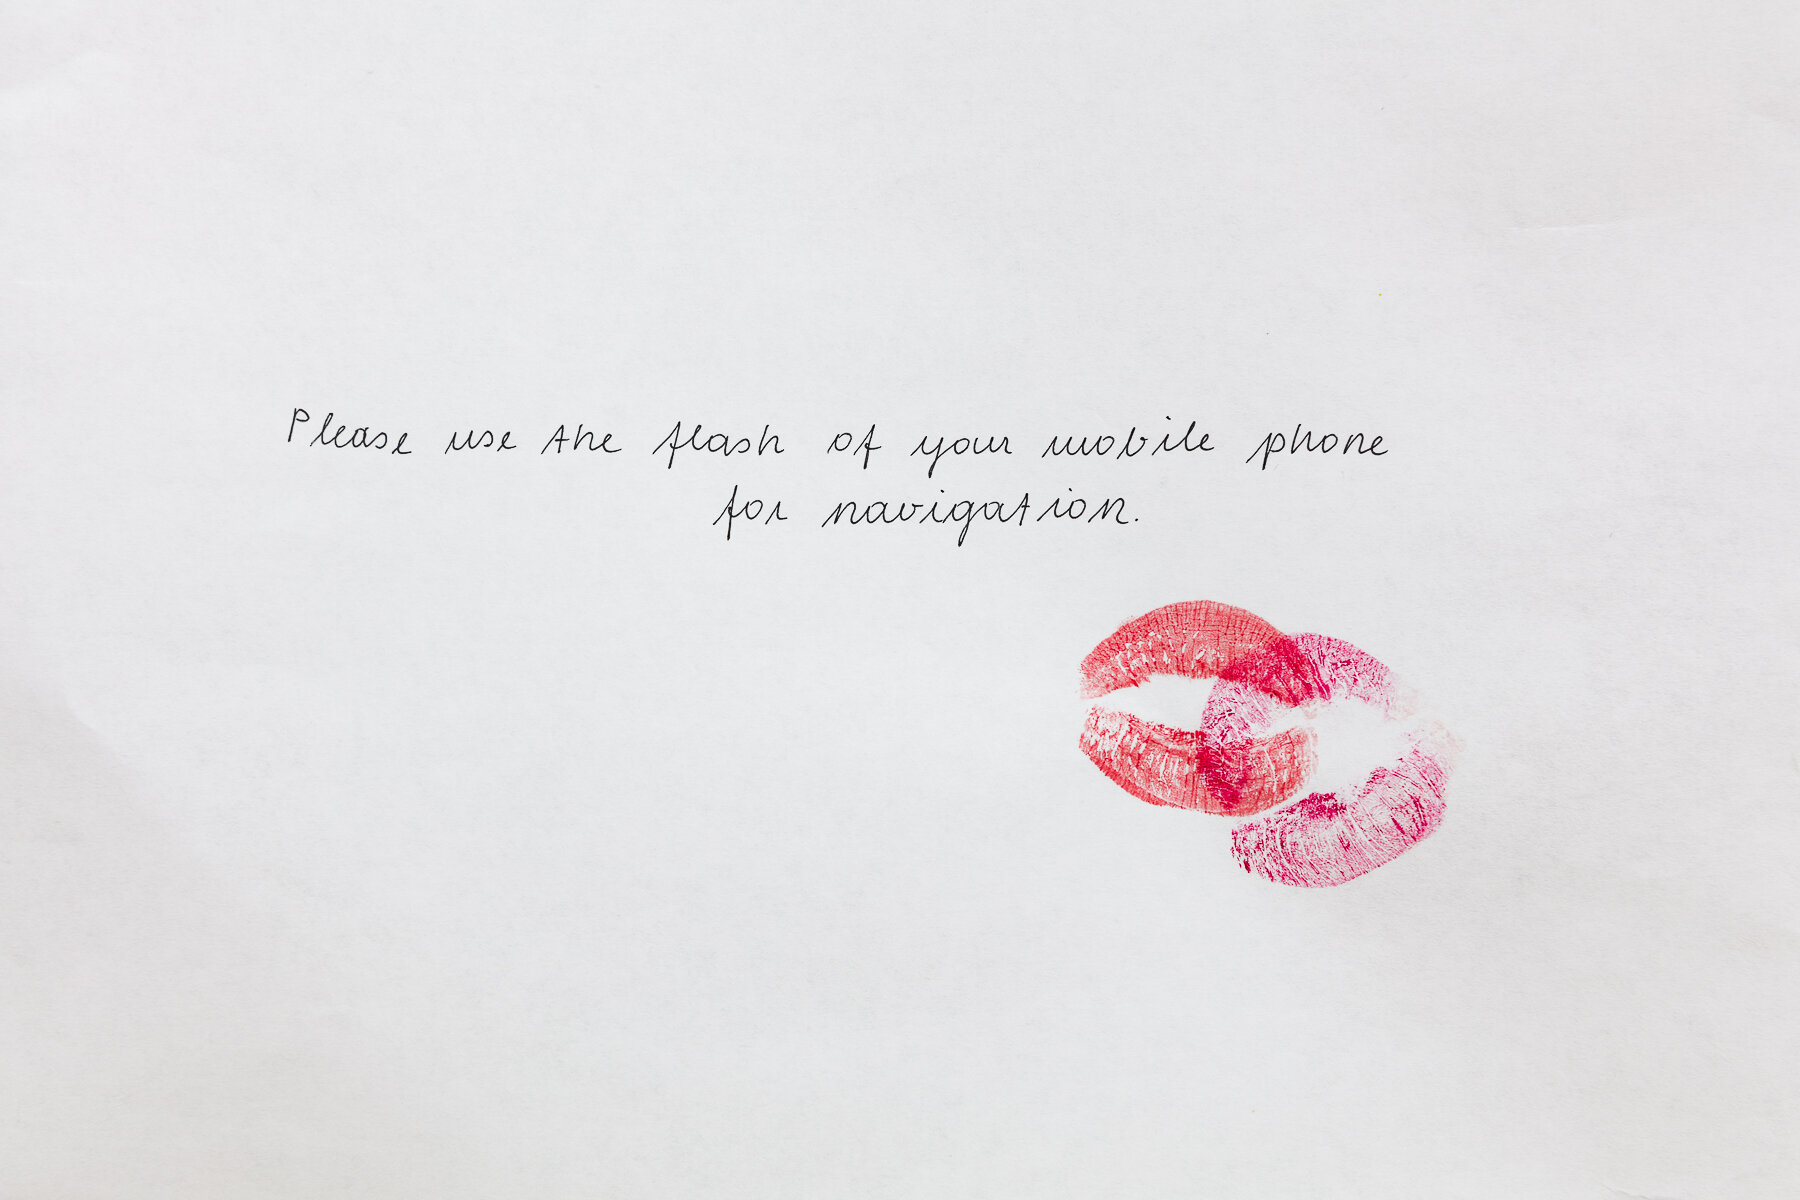 Please use the flash of your mobile phone
for navigation.